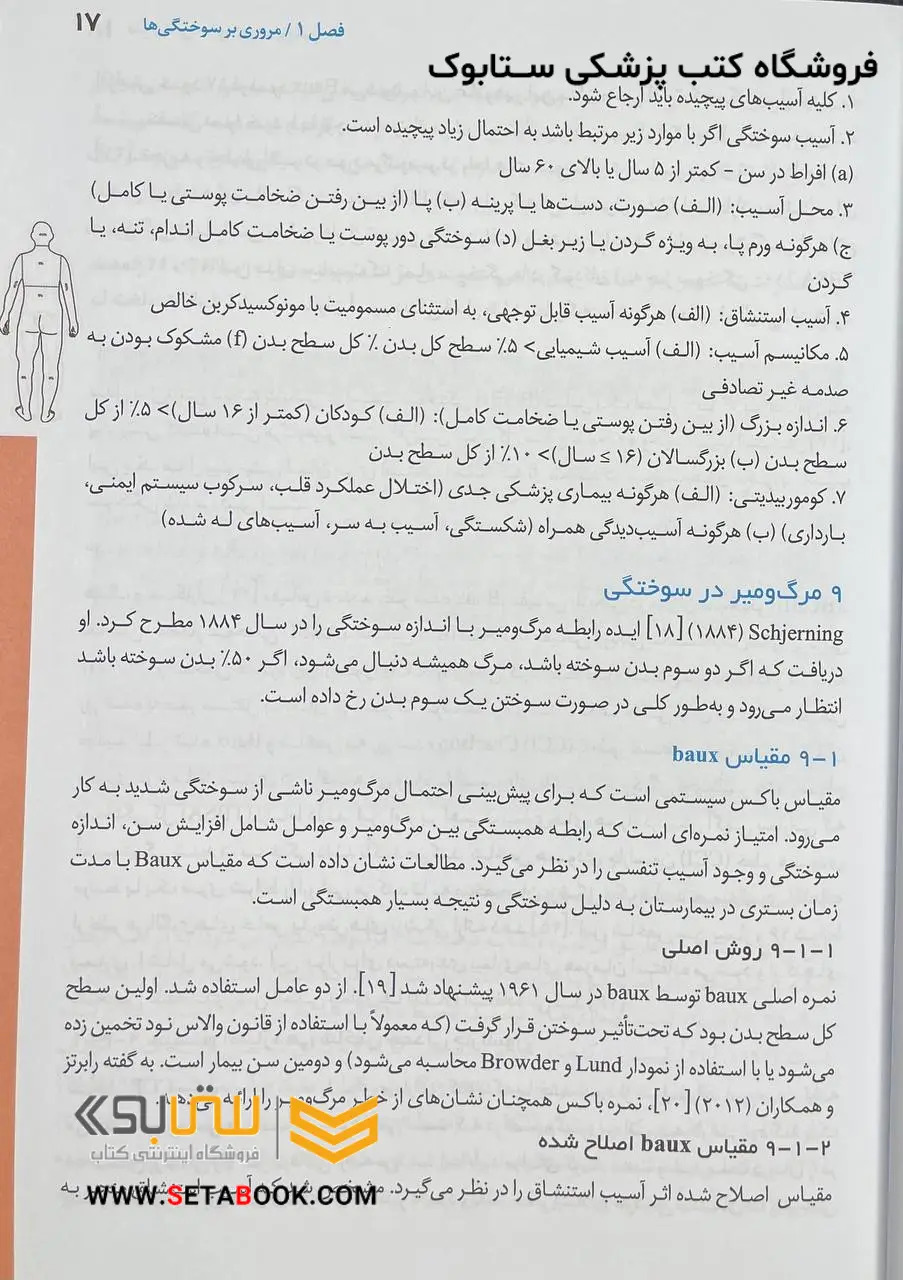 ۱۷
فصل ۱ / مروری بر سوختگی‌ها
فروشگاه کتب پزشکی ستابوک
۱. کلیه آسیب‌های پیچیده باید ارجاع شود.
۲. آسیب سوختگی اگر با موارد زیر مرتبط باشد به احتمال زیاد پیچیده است.
(a) افراط در سن – کمتر از ۵ سال یا بالای ۶۰ سال
۳. محل آسیب: (الف) صورت، دست‌ها یا پرینه (ب) پا (از بین رفتن ضخامت پوستی یا کامل)
ج) هرگونه ورم پا، به ویژه گردن یا زیر بغل (د) سوختگی دور پوست یا ضخامت کامل اندام، تنه، یا
گردن
۴. آسیب استنشاق: (الف) هرگونه آسیب قابل توجهی، به استثنای مسمومیت با مونوکسیدکربن خالص
۵. مکانیسم آسیب: (الف) آسیب شیمیایی> ۵٪ سطح کل بدن ٪ کل سطح بدن (f) مشکوک بودن به
صدمه غیر تصادفی
۶. اندازه بزرگ (از بین رفتن پوستی یا ضخامت کامل): (الف) کودکان (کمتر از ۱۶ سال)> ۵٪ از کل
سطح بدن (ب) بزرگسالان (۱۶ ≥ سال)> ۱۰٪ از کل سطح بدن
۷. کوموربیدیتی: (الف) هرگونه بیماری پزشکی جدی (اختلال عملکرد قلب، سرکوب سیستم ایمنی،
بارداری) (ب) هرگونه آسیب‌دیدگی همراه (شکستگی، آسیب به سر، آسیب‌های له شده)
۹ مرگ‌ومیر در سوختگی
Schjerning (۱۸۸۴) [۱۸] ایده رابطه مرگ‌ومیر با اندازه سوختگی را در سال ۱۸۸۴ مطرح کرد. او
دریافت که اگر دو سوم بدن سوخته باشد، مرگ همیشه دنبال می‌شود، اگر ۵۰٪ بدن سوخته باشد
انتظار می‌رود و به‌طور کلی در صورت سوختن یک سوم بدن رخ داده است.
۹-۱ مقیاس baux
مقیاس باکس سیستمی است که برای پیش‌بینی احتمال مرگ‌ومیر ناشی از سوختگی شدید به کار
می‌رود. امتیاز نمره‌ای است که رابطه همبستگی بین مرگ‌ومیر و عوامل شامل افزایش سن، اندازه
سوختگی و وجود آسیب تنفسی را در نظر می‌گیرد. مطالعات نشان داده است که مقیاس Baux با مدت
زمان بستری در بیمارستان به دلیل سوختگی و نتیجه بسیار همبستگی است.
۹-۱-۱ روش اصلی
نمره اصلی baux توسط baux در سال ۱۹۶۱ پیشنهاد شد [۱۹]. از دو عامل استفاده شد. اولین سطح
کل سطح بدن بود که تحت‌تأثیر سوختن قرار گرفت (که معمولاً با استفاده از قانون والاس نود تخمین زده
می‌شود یا با استفاده از نمودار Lund و Browder محاسبه می‌شود) و دومین سن بیمار است. به گفته رابرتز
و همکاران (۲۰۱۲) [۲۰]، نمره باکس همچنان نشان‌های از خطر مرگ‌ومیر را ارائه می‌دهد.
۹-۱-۲ مقیاس baux اصلاح شده
مقیاس اصلاح شده اثر آسیب استنشاق را در نظر می‌گیرد.
ستابوک
فروشگاه اینترنتی کتاب
WWW.SETABOOK.COM